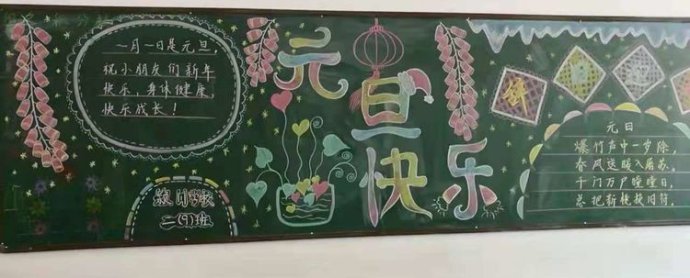 一月一日是元旦，
祝小朋友们新年
快乐，身体健康，
快乐成长！
二(9)班
元旦
快乐
元日
爆竹声中一岁除
春风送暖入屠苏，
千门万户曈曈日，
总把新桃换旧符。